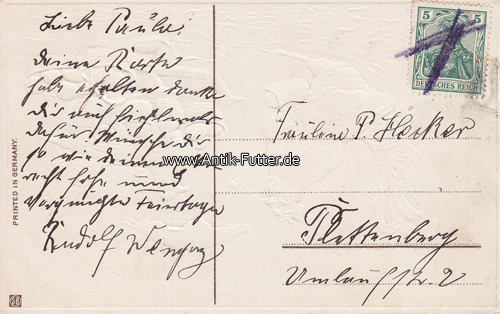 Liebe Paula!
deine Karte
habe erhalten danke
dir auch herzlich
dafür Wünsche dir
so wie deinen
recht frohe und
vergnügte Feiertage
Rudolf
5 5
DEUTSCHES REICH
Fräulein P. Hecker
www.Antik-Futter.de
Plettenberg
Umlaufstr. 2
PRINTED IN GERMANY.